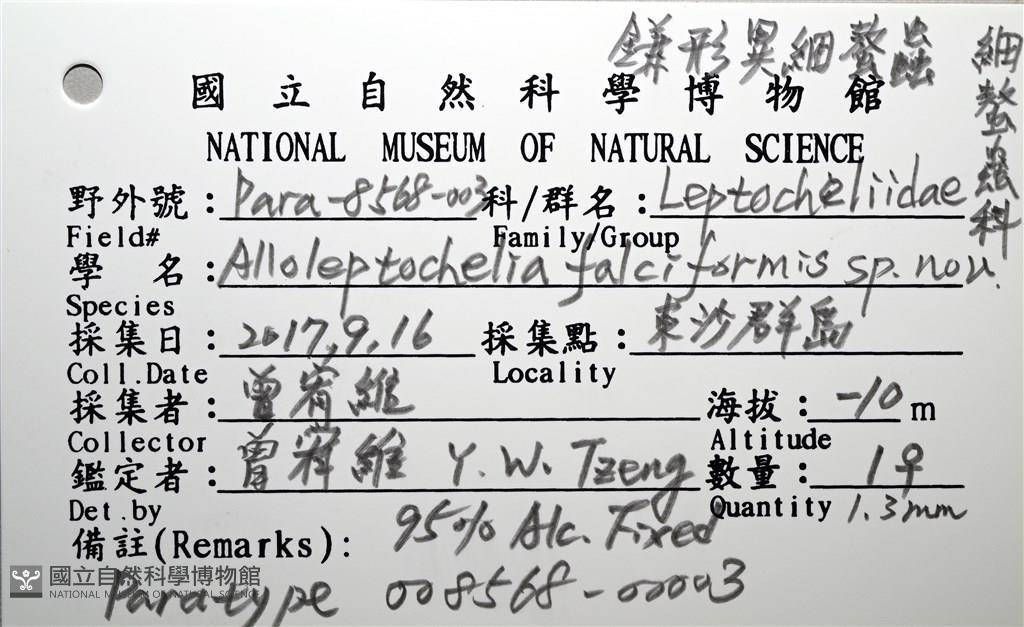 鎌形異細螯蟲
細螯蟲科
國立自然科學博物館
NATIONAL MUSEUM OF NATURAL SCIENCE
野外號：Para-8568-003 科/群名：Leptocheliidae
Field# Family/Group
學名：Alloleptochelia falciformis sp. nov.
Species
採集日：2017.9.16 採集點：東沙群島
Coll.Date Locality
採集者：曾宥維 海拔：-10 m
Collector Altitude
鑑定者：曾宥維 Y. W. Tzeng 數量：1♀
Det.by Quantity 1.3mm
備註(Remarks)： 95% Alc. Fixed
Paratype 008568-00003
國立自然科學博物館
NATIONAL MUSEUM OF NATURAL SCIENCE